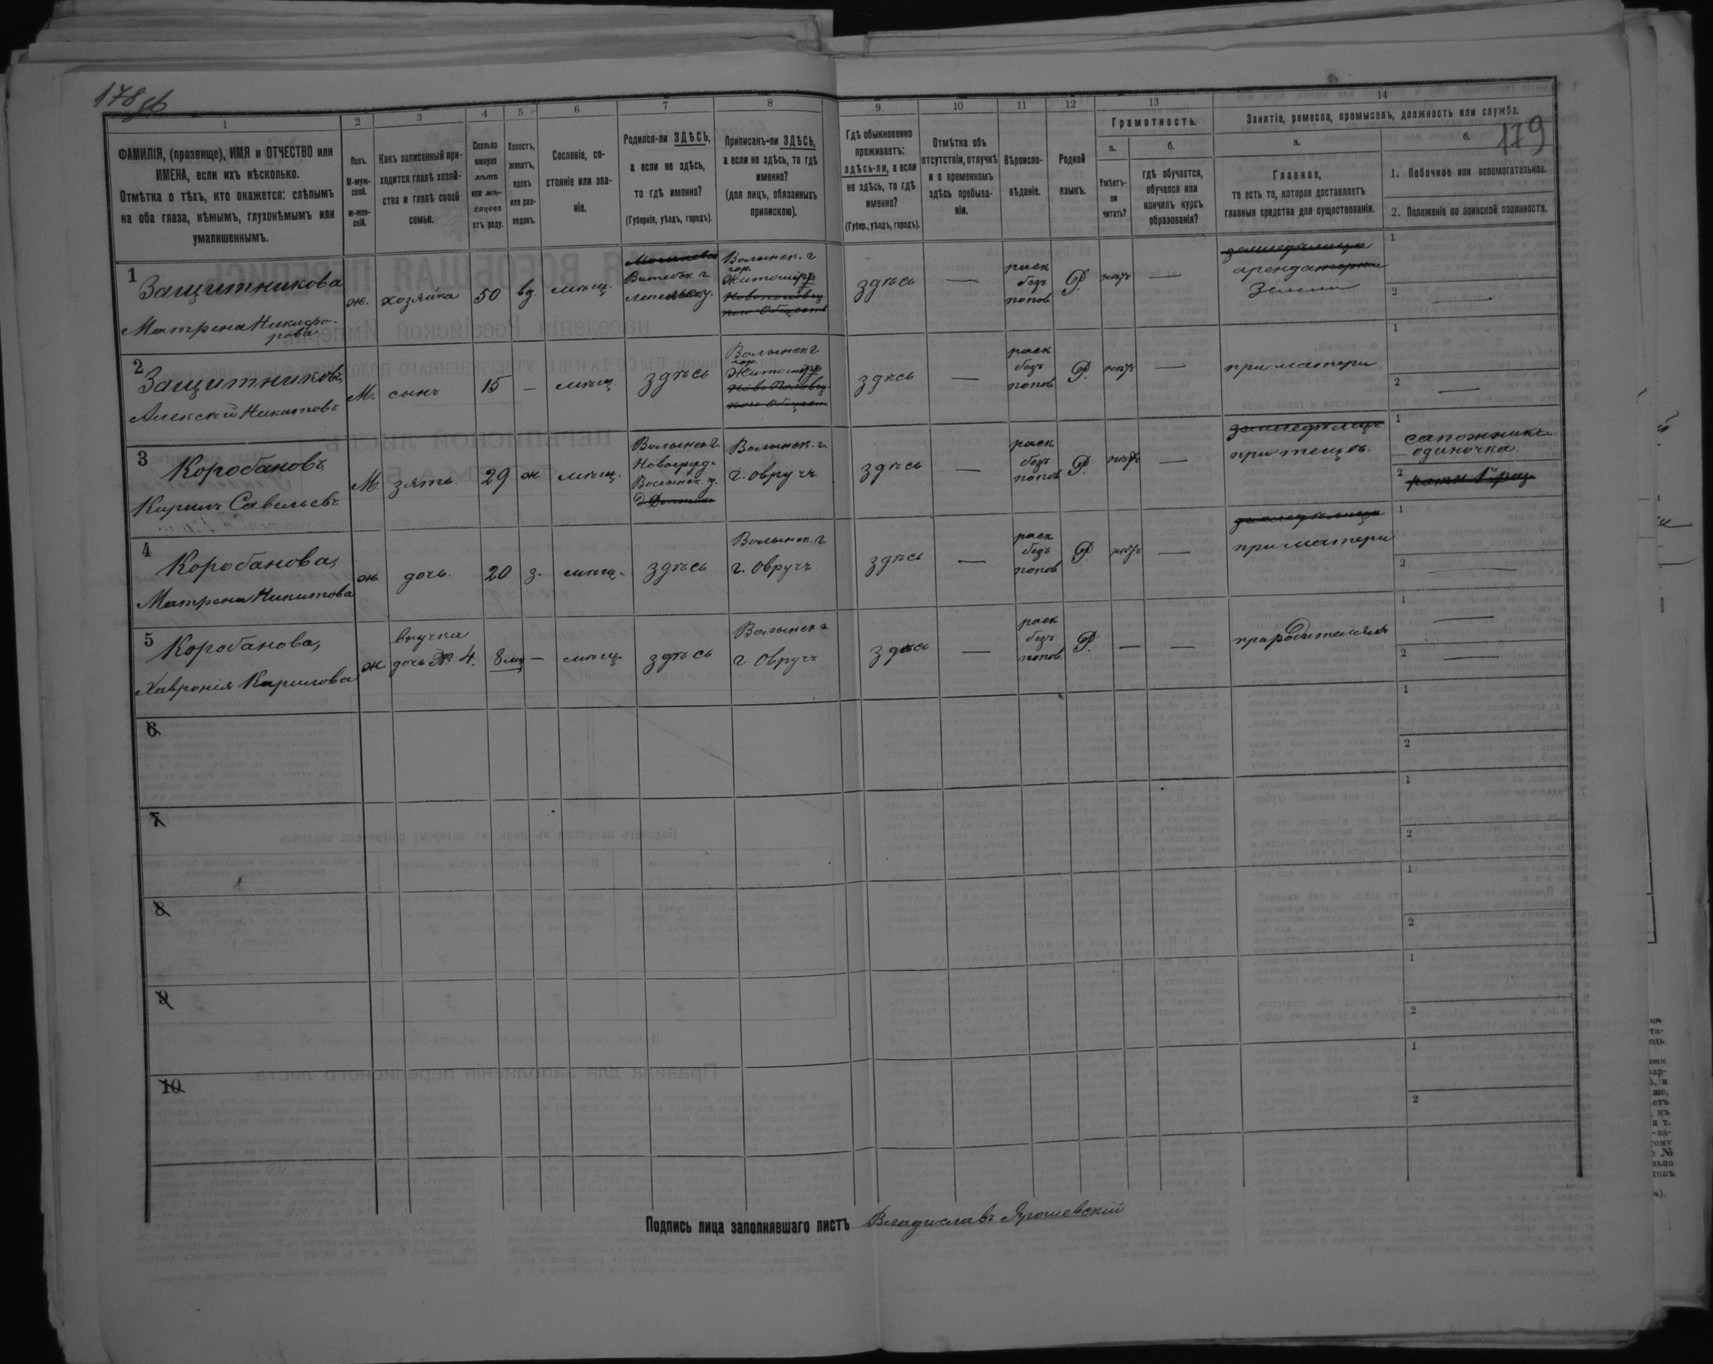 178 об
179
1 2 3 4 5 6 7 8 9 10 11 12 13 14
ФАМИЛІЯ, (прозвище), ИМЯ и ОТЧЕСТВО или
ИМЕНА, если ихъ нѣсколько.
Отмѣтка о тѣхъ, кто окажется: слѣпымъ
на оба глаза, нѣмымъ, глухонѣмымъ или
умалишеннымъ.
Полъ.
М-муж-
ской.
ж-жен-
скій.
Какъ записанный при-
ходится главѣ хозяй-
ства и главѣ своей
семьи.
Сколько
минуло
лѣтъ
или мѣ-
сяцевъ
отъ роду.
Холостъ,
женатъ,
вдовъ
или раз-
веденъ.
Сословіе, со-
стояніе или зва-
ніе.
Родился-ли ЗДѢСЬ,
а если не здѣсь,
то гдѣ именно?
(Губернія, уѣздъ, городъ).
Приписанъ-ли ЗДѢСЬ,
а если не здѣсь, то гдѣ
именно?
(для лицъ, обязанныхъ
припискою).
Гдѣ обыкновенно
проживаетъ:
здѣсь-ли, а если
не здѣсь, то гдѣ
именно?
(Губер., уѣздъ, городъ).
Отмѣтка объ
отсутствіи, отлучкѣ
и о временномъ
здѣсь пребыва-
ніи.
Вѣроиспо-
вѣданіе.
Родной
языкъ.
Грамотность.
а.
Умѣетъ-
ли
читать?
б.
гдѣ обучается,
обучался или
кончилъ курсъ
образованія?
Занятіе, ремесло, промыселъ, должность или служба.
а.
Главное,
то есть то, которое доставляетъ
главныя средства для существованія.
б.
1. Побочное или вспомогательное.
2. Положеніе по воинской повинности.
1
Защитникова
Матрена Никифо-
рова
ж.
хозяйка
50
вд.
мѣщ.
Витебск. г.
Лепельск. у.
Волынск. г.
гор.
Житомір
здѣсь
—
раск
безъ
попов
Р.
нѣтъ
—
земледѣлица
арендаторка
земли
1
2 —
2
Защитниковъ
Алексѣй Никитовъ
М.
сынъ
15
—
мѣщ.
здѣсь
Волынск. г.
гор.
Житомір
здѣсь
—
раск
безъ
попов
Р.
нѣтъ
—
при матери
1
2 —
3
Коробановъ
Кирилъ Савельевъ
М.
зять
29
ж
мѣщ.
Волынск. г.
Новоград-
Волынск. у.
Волынск. г.
г. Овручъ
здѣсь
—
раск
безъ
попов
Р.
нѣтъ
—
при тещѣ
1 сапожникъ
одиночка
2
4
Коробанова,
Матрена Никитова
ж.
дочь
20
з.
мѣщ.
здѣсь
Волынск. г.
г. Овручъ
здѣсь
—
раск
безъ
попов
Р.
нѣтъ
—
земледѣлица
при матери
1
2 —
5
Коробанова,
Хавронія Кирилова
ж.
внучка
дочь № 4.
8 мц
—
мѣщ.
здѣсь
Волынск. г.
г. Овручъ
здѣсь
—
раск
безъ
попов.
Р.
—
—
при родителяхъ
1 —
2 —
6
1
2
7
1
2
8
1
2
9
1
2
10
1
2
Подпись лица заполнявшаго листъ Владиславъ Ярошевскій